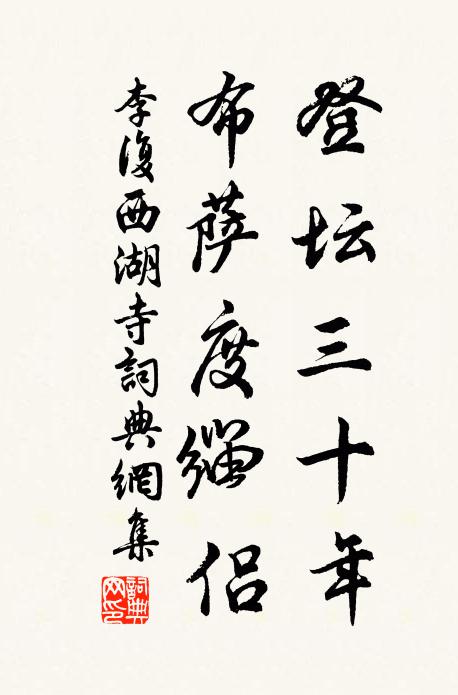 登坛三十年
布萨度缁侣
李復西湖寺詞典網集
詞典網印